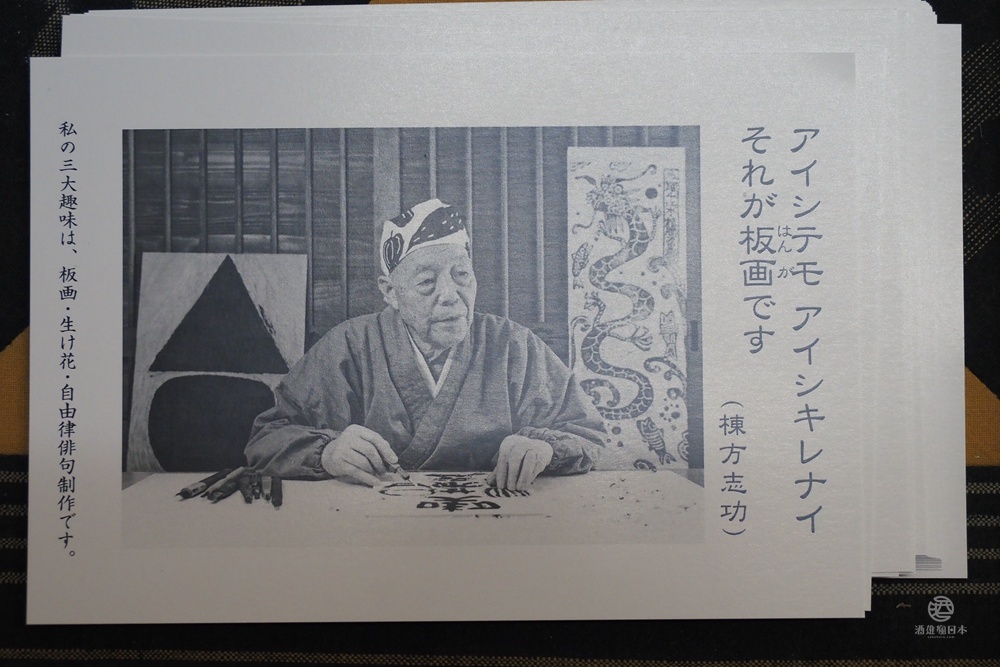 アイシテモ アイシキレナイ
それが板画です
はん が
(棟方志功)
私の三大趣味は、板画・生け花・自由律俳句制作です。
酒雄瘋日本